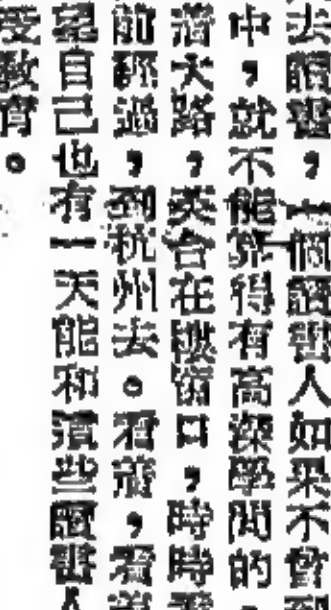 去讀書，一個讀書人如果不曾到
中，就不能算得有高深學問的
着大路，英台在樓窗口，時時看
前經過，到杭州去。看着，看着
望自己也有一天能和這些讀書人
受教育。